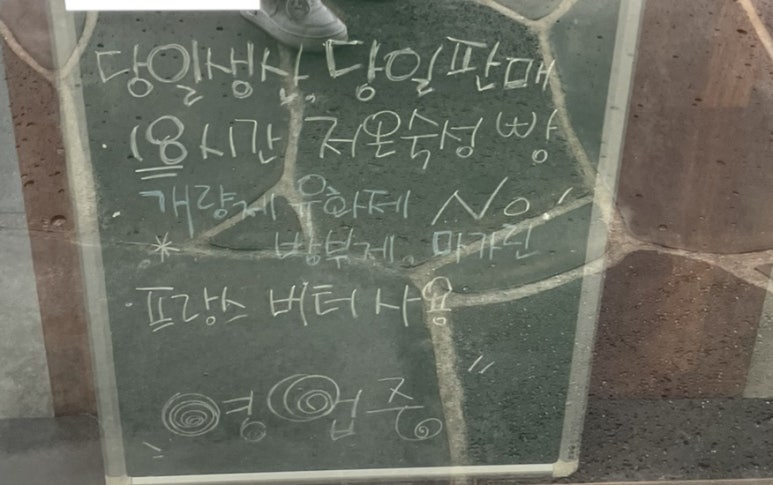 당일생산, 당일판매
18시간 저온숙성 빵
개량제 유화제 NO!
* 방부제, 마가린
프랑스 버터 사용
영업중